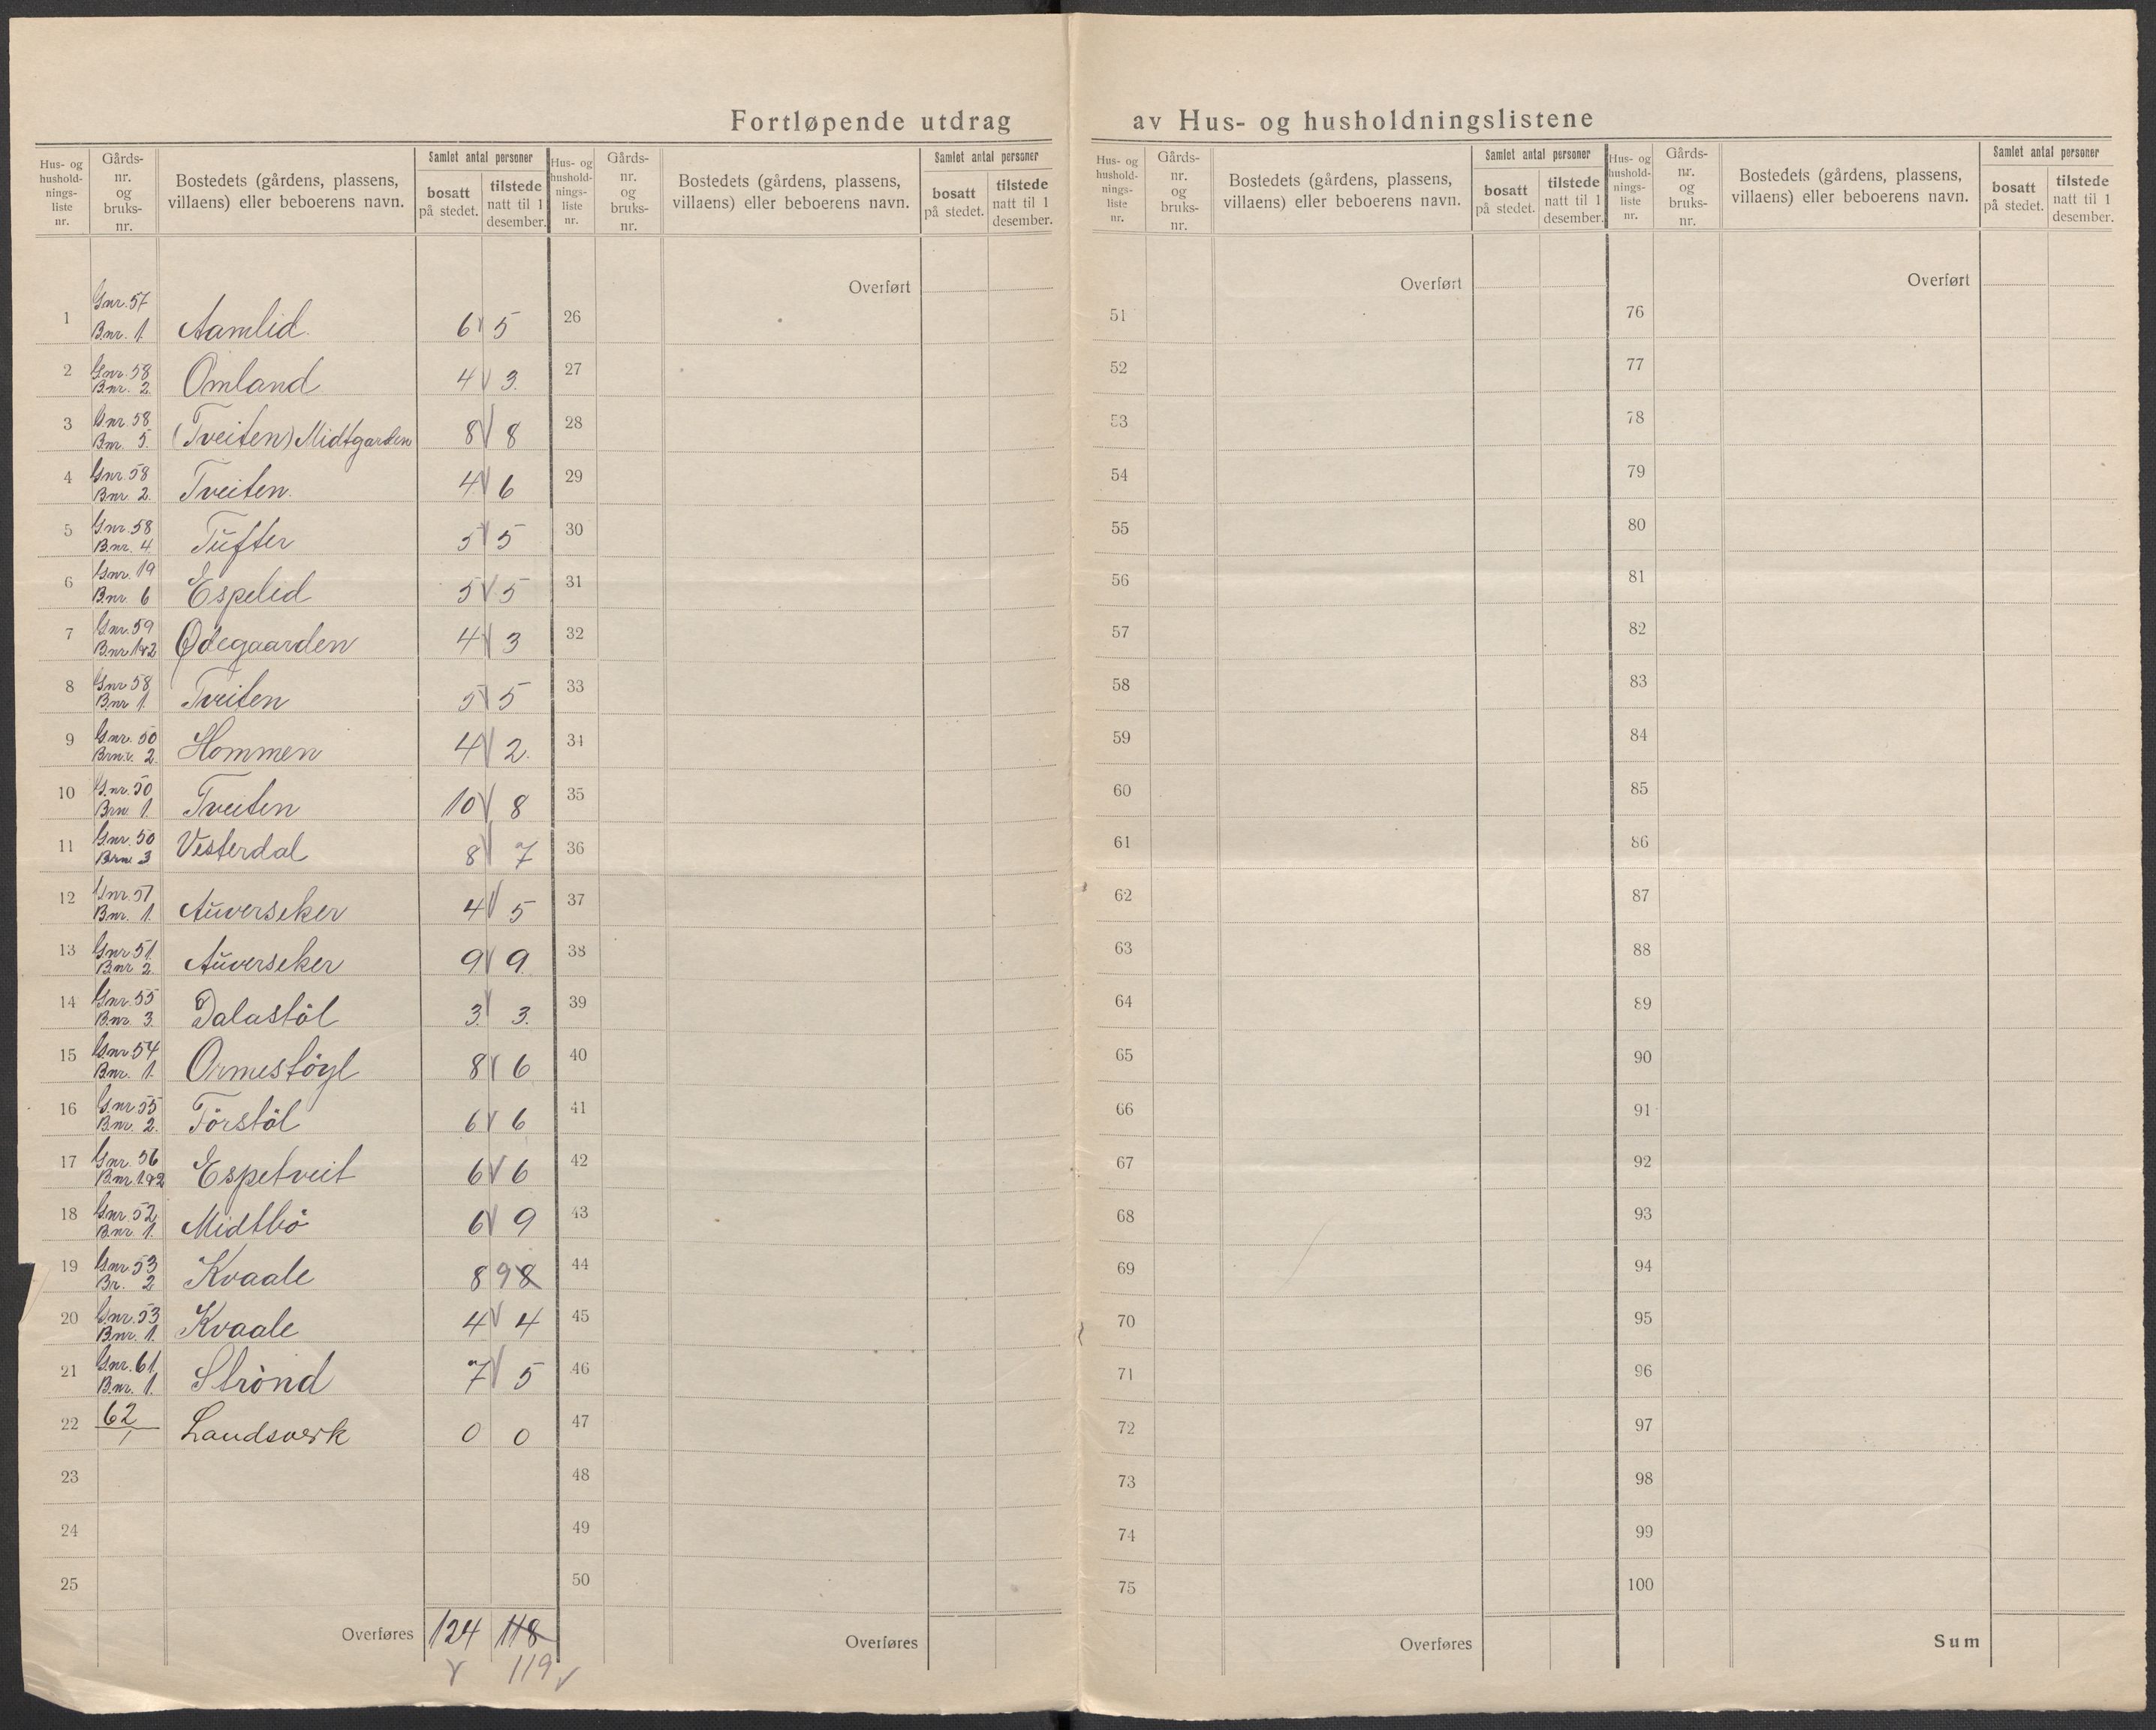 Fortløpende utdrag av Hus- og husholdningslistene
Hus- og husholdningsliste nr. | Gårds-nr. og bruks-nr. | Bostedets (gårdens, plassens, villaens) eller beboerens navn. | Samlet antal personer bosatt på stedet. | tilstede natt til 1 desember.
Hus- og husholdningsliste nr. | Gårds-nr. og bruks-nr. | Bostedets (gårdens, plassens, villaens) eller beboerens navn. | Samlet antal personer bosatt på stedet. | tilstede natt til 1 desember.
Hus- og husholdningsliste nr. | Gårds-nr. og bruks-nr. | Bostedets (gårdens, plassens, villaens) eller beboerens navn. | Samlet antal personer bosatt på stedet. | tilstede natt til 1 desember.
Hus- og husholdningsliste nr. | Gårds-nr. og bruks-nr. | Bostedets (gårdens, plassens, villaens) eller beboerens navn. | Samlet antal personer bosatt på stedet. | tilstede natt til 1 desember.
1 Gnr. 57 Bnr. 1. Aamlid. 6 5
2 Gnr. 58 Bnr. 2. Omland 4 3.
3 Gnr. 58 Bnr. 5. (Tveiten) Midtgarden 8 8
4 Gnr. 58 Bnr. 2. Tveiten. 4 6
5 Gnr. 58 Bnr. 4. Tufter 5 5
6 Gnr. 19 Bnr. 6 Espelid 5 5
7 Gnr. 59 Bnr 1&2 Ødegaarden 4 3
8 Gnr 58 Bnr 1. Tveiten 5 5
9 Gnr. 50 Brnr. 2. Hommen 4 2.
10 Gnr. 50 Brn. 1. Tveiten 10 8
11 Gnr. 50 Brnr 3 Vesterdal 8 7
12 Gnr. 51 Bnr. 1. Auverseker 4 5
13 Gnr 51. Bnr 2. Auverseker 9 9
14 Gnr. 55 Bnr. 3. Dalastöl 3. 3.
15 Gnr 54 Bnr. 1. Ormestöyl 8 6
16 Gnr 55 Bnr. 2. Törstöl 6 6
17 Gnr. 56 Bnr 1&2 Espetveit 6 6
18 Gnr. 52 Bnr. 1. Midtbö 6 9
19 Gnr. 53 Br. 2 Kvaale 8 9 8
20 Gnr. 53 Bnr. 1. Kvaale 4 4
21 Gnr. 61. Bnr. 1. Strönd 7 5
22 62/1 Landsverk 0 0
23
24
25
Overføres 124 118
119
Overført
26
27
28
29
30
31
32
33
34
35
36
37
38
39
40
41
42
43
44
45
46
47
48
49
50
Overføres
Overført
51
52
53
54
55
56
57
58
59
60
61
62
63
64
65
66
67
68
69
70
71
72
73
74
75
Overføres
Overført
76
77
78
79
80
81
82
83
84
85
86
87
88
89
90
91
92
93
94
95
96
97
98
99
100
Sum